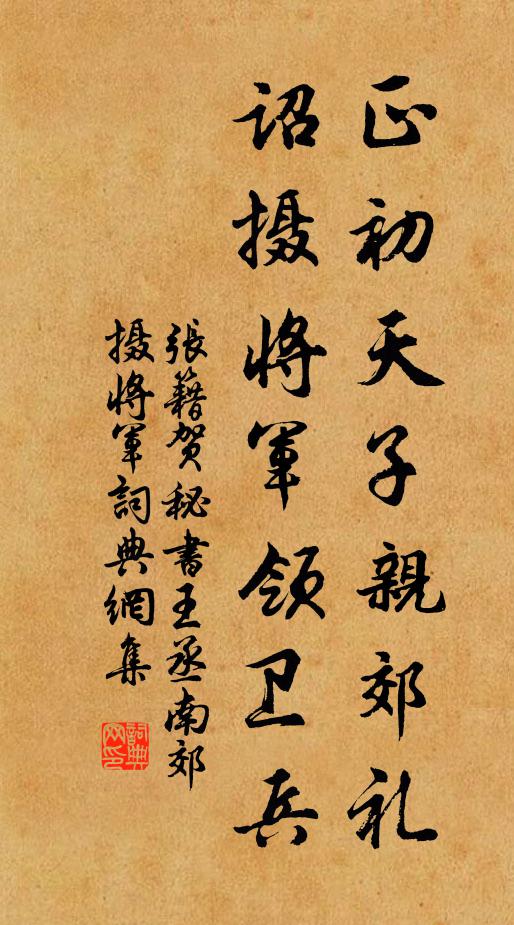 正初天子親郊礼
诏摄将军领卫兵
張籍贺秘書王丞南郊
摄将军詞典網集
詞典網印